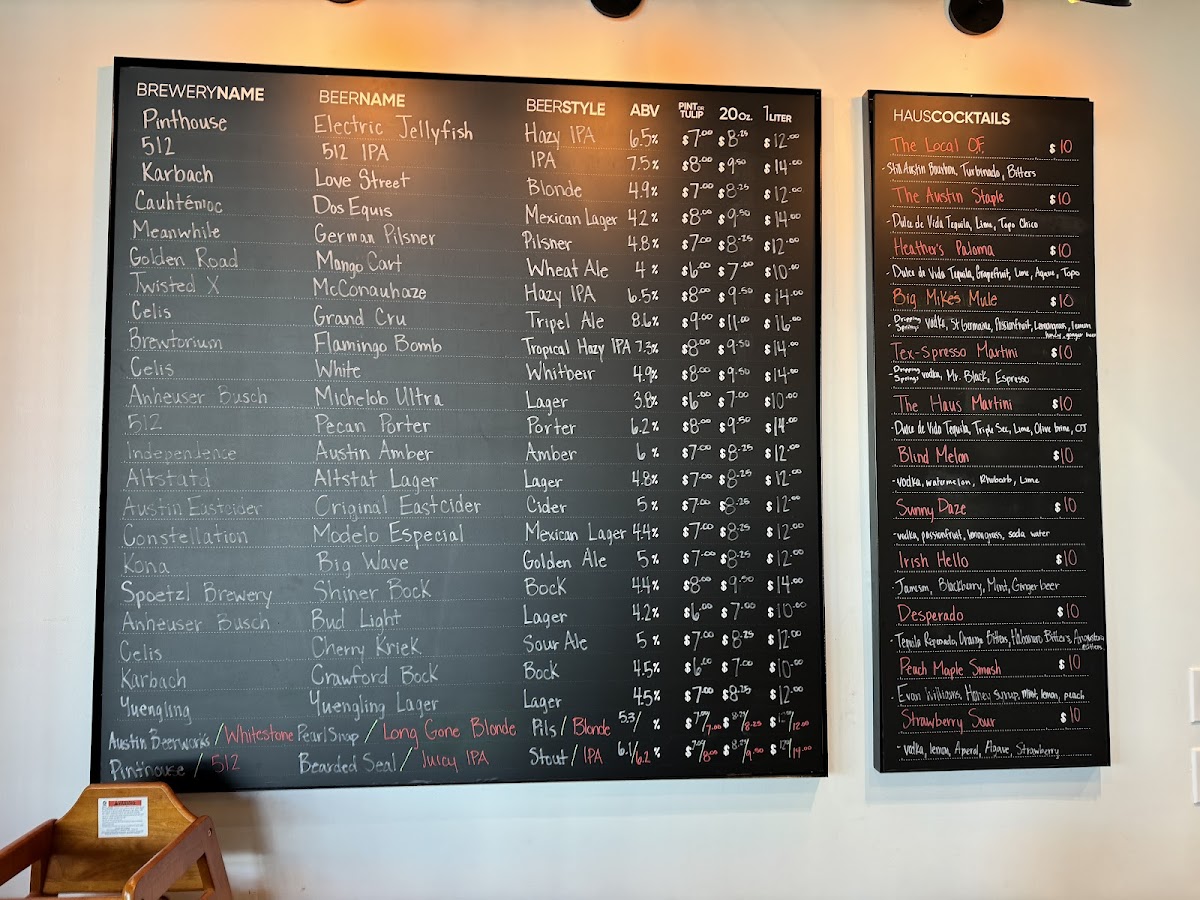 BREWERYNAME BEERNAME BEERSTYLE ABV PINT OR TULIP 20 OZ. 1 LITER
Pinthouse Electric Jellyfish Hazy IPA 6.5% $7.00 $8.25 $12.00
512 512 IPA IPA 7.5% $8.00 $9.50 $14.00
Karbach Love Street Blonde 4.9% $7.00 $8.25 $12.00
Cauhtémoc Dos Equis Mexican Lager 4.2% $8.00 $9.50 $14.00
Meanwhile German Pilsner Pilsner 4.8% $7.00 $8.25 $12.00
Golden Road Mango Cart Wheat Ale 4% $6.00 $7.00 $10.00
Twisted X McConauhaze Hazy IPA 6.5% $8.00 $9.50 $14.00
Celis Grand Cru Tripel Ale 8.6% $9.00 $11.00 $16.00
Brewtorium Flamingo Bomb Tropical Hazy IPA 7.3% $8.00 $9.50 $14.00
Celis White Whitbeir 4.9% $8.00 $9.50 $14.00
Anheuser Busch Michelob Ultra Lager 3.8% $6.00 $7.00 $10.00
512 Pecan Porter Porter 6.2% $8.00 $9.50 $14.00
Independence Austin Amber Amber 6% $7.00 $8.25 $12.00
Altstatd Altstat Lager Lager 4.8% $7.00 $8.25 $12.00
Austin Eastcider Original Eastcider Cider 5% $7.00 $8.25 $12.00
Constellation Modelo Especial Mexican Lager 4.4% $7.00 $8.25 $12.00
Kona Big Wave Golden Ale 5% $7.00 $8.25 $12.00
Spoetzl Brewery Shiner Bock Bock 4.4% $8.00 $9.50 $14.00
Anheuser Busch Bud Light Lager 4.2% $6.00 $7.00 $10.00
Celis Cherry Kriek Sour Ale 5% $7.00 $8.25 $12.00
Karbach Crawford Bock Bock 4.5% $6.00 $7.00 $10.00
Yuengling Yuengling Lager Lager 4.5% $7.00 $8.25 $12.00
Austin Beerworks/Whitestone Pearl Snap/Long Gone Blonde Pils/Blonde 5.3/ %
Pinthouse/512 Bearded Seal/Juicy IPA Stout/IPA 6.1/6.2%
HAUSCOCKTAILS
The Local O.F. $10
-Still Austin Bourbon, Turbinado, Bitters
The Austin Staple $10
-Dulce de Vida Tequila, Lime, Topo Chico
Heather's Paloma $10
-Dulce de Vida Tequila, Grapefruit, Lime, Agave, Topo
Big Mike's Mule $10
-Dripping Springs vodka, St Germaine, Passionfruit, Lemongrass, lemon
ginger beer
Tex-Spresso Martini $10
-Dripping Springs vodka, Mr. Black, Espresso
The Haus Martini $10
Dulce de Vida Tequila, Triple Sec, Lime, Olive brine, OJ
Blind Melon $10
-vodka, watermelon, Rhubarb, Lime
Sunny Daze $10
-vodka, passionfruit, lemongrass, soda water
Irish Hello $10
-Jameson, Blackberry, Mint, Ginger beer
Desperado $10
-Tequila Reposado, Orange Bitters, Habanero Bitters, Angostura
Bitters
Peach Maple Smash $10
-Evan Williams, Honey Syrup, mint, lemon, peach
Strawberry Sour $10
-vodka, lemon, Aperol, Agave, Strawberry